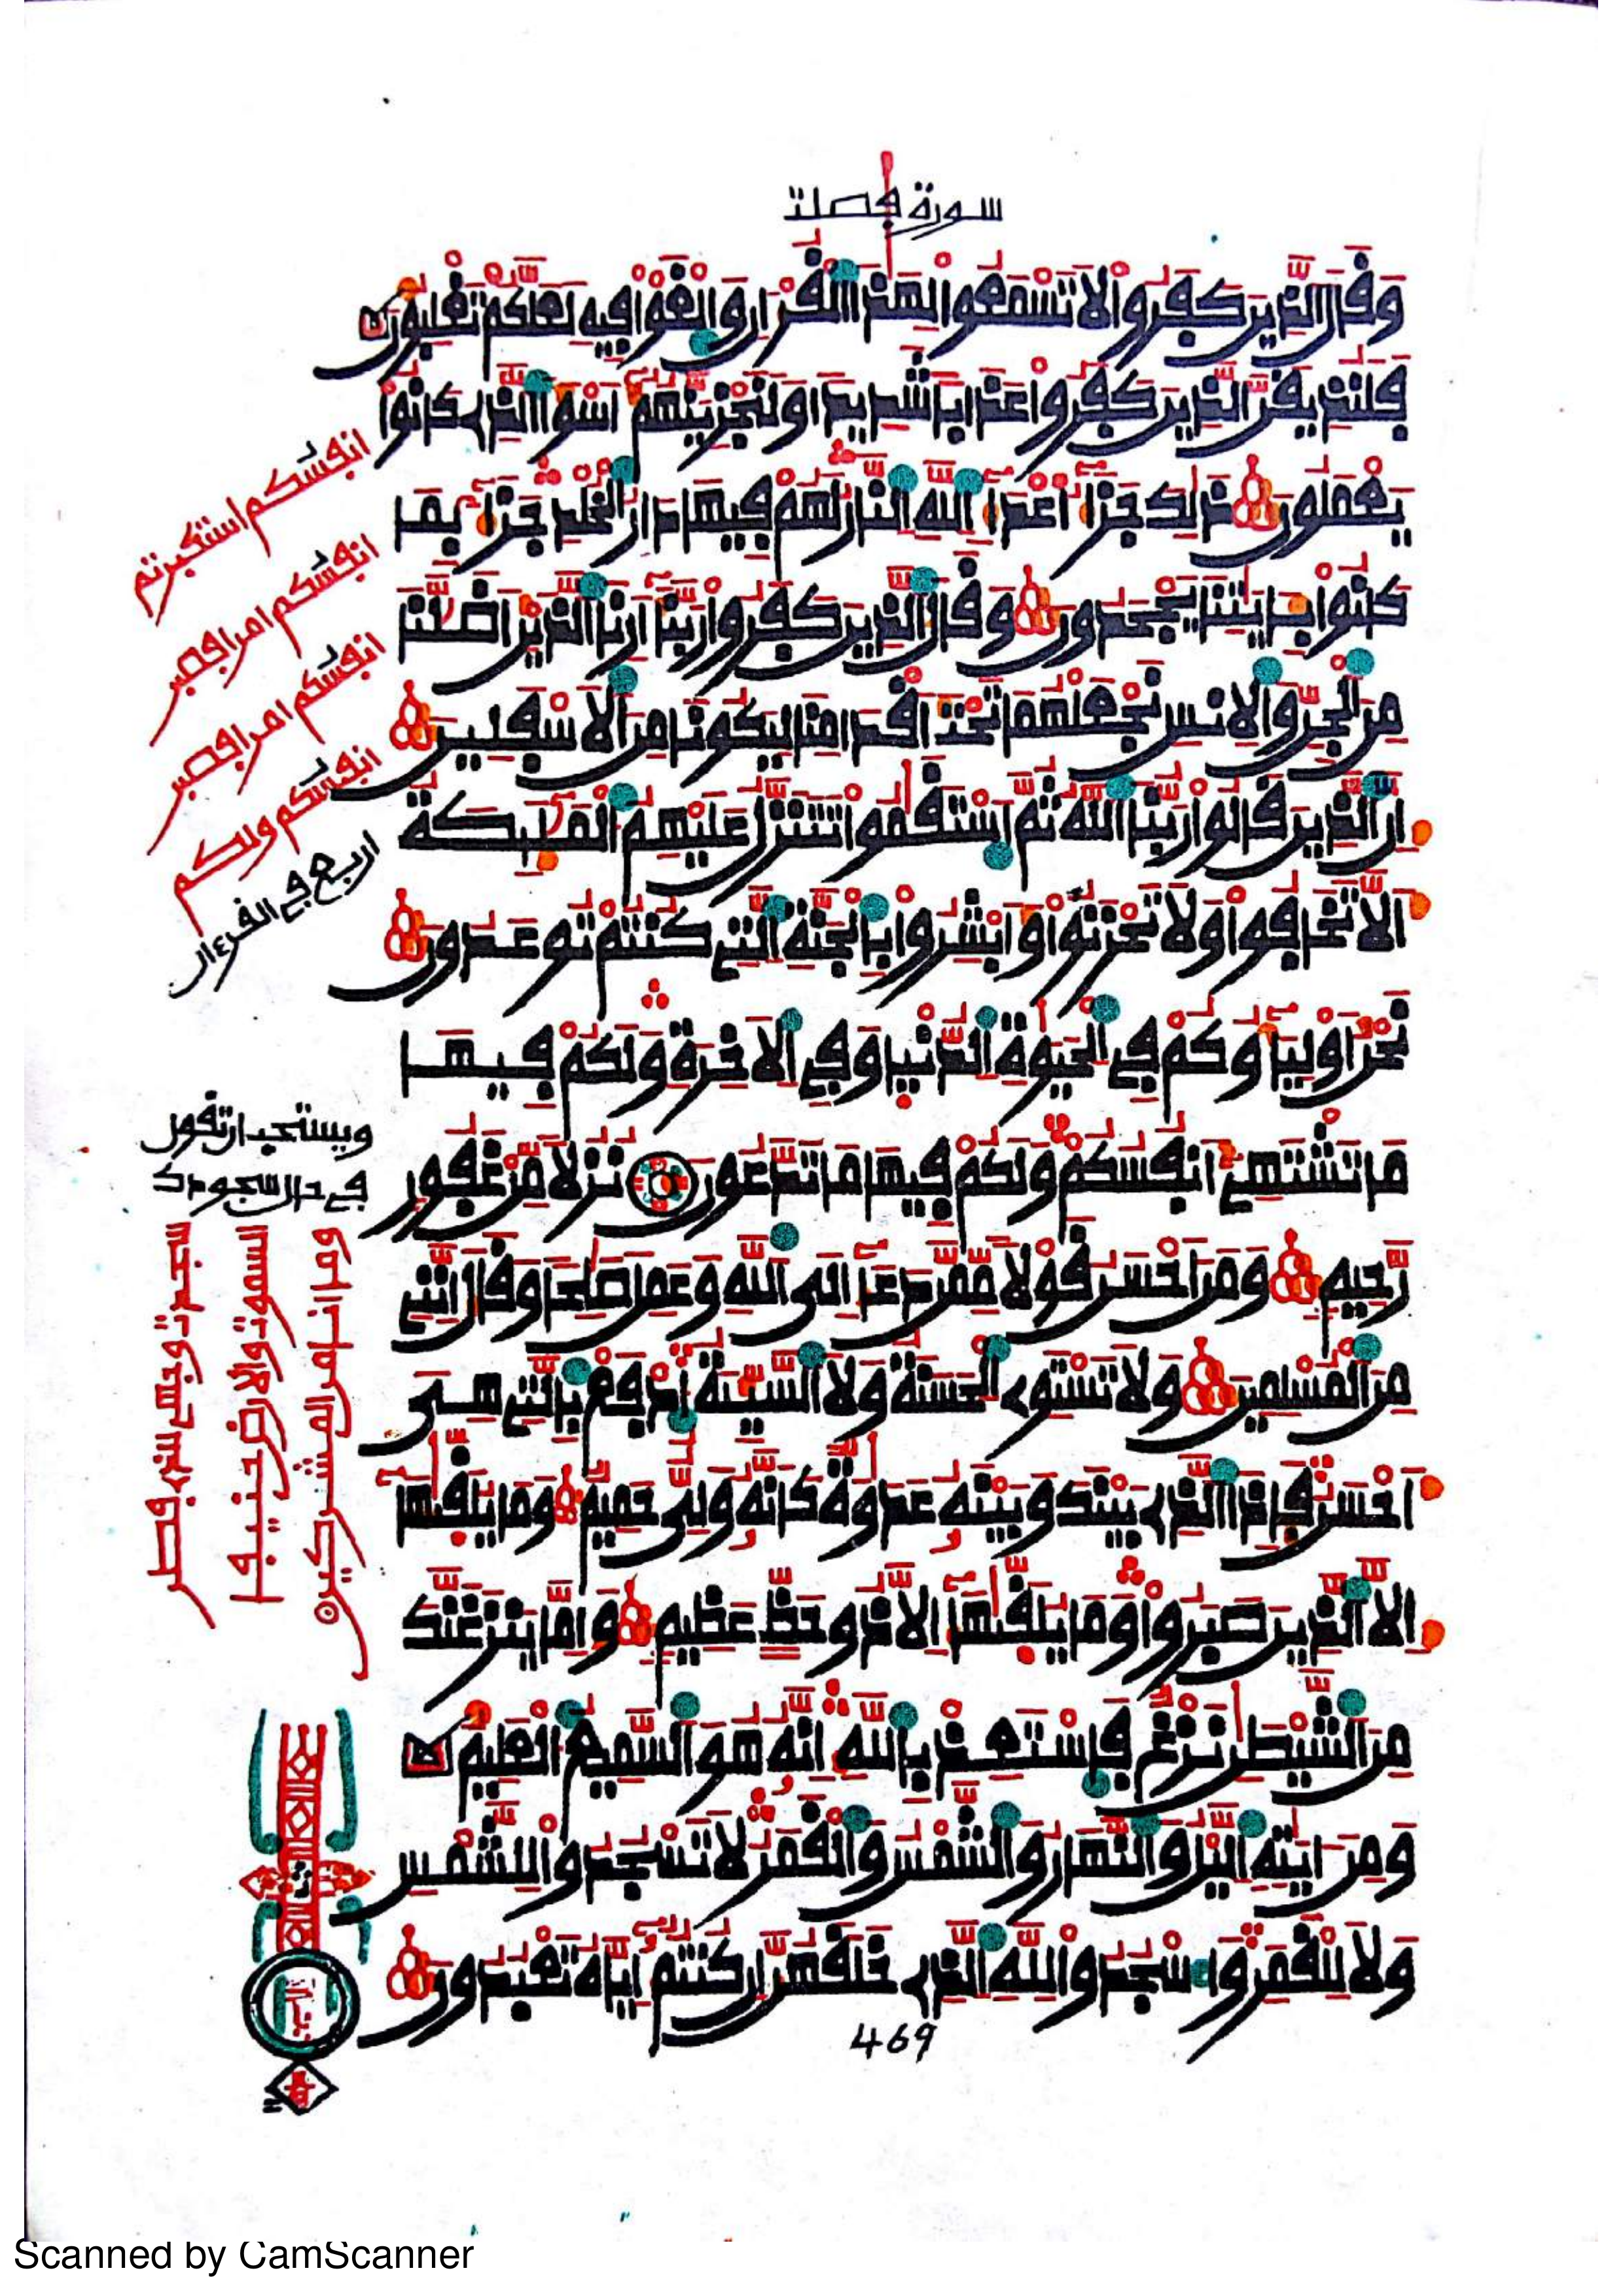 سورة فصلت
وقال الذين كفروا لا تسمعوا لهذا القرءان والغوا فيه لعلكم تغلبون
فلنذيقن الذين كفروا عذابا شديدا ولنجزينهم أسوأ الذي كانوا
يعملون ذلك جزاء أعداء الله النار لهم فيها دار الخلد جزاء بما
كانوا بآيتنا يجحدون وقال الذين كفروا ربنا أرنا الذين أضلنا
من الجن والإنس نجعلهما تحت أقدامنا ليكونا من الأسفلين
إن الذين قالوا ربنا الله ثم استقموا تتنزل عليهم الملئكة
ألا تخافوا ولا تحزنوا وأبشروا بالجنة التي كنتم توعدون
نحن أولياؤكم في الحيوة الدنيا وفي الآخرة ولكم فيها
ما تشتهي أنفسكم ولكم فيها ما تدعون نزلا من غفور
رحيم ومن أحسن قولا ممن دعا إلى الله وعمل صلحا وقال إنني
من المسلمين ولا تستوي الحسنة ولا السيئة ادفع بالتي هي
أحسن فإذا الذي بينك وبينه عدوة كأنه ولي حميم وما يلقيها
إلا الذين صبروا وما يلقيها إلا ذو حظ عظيم وإما ينزغنك
من الشيطن نزغ فاستعذ بالله إنه هو السميع العليم
ومن آيته اليل والنهار والشمس والقمر لا تسجدوا للشمس
ولا للقمر واسجدوا لله الذي خلقهن إن كنتم إياه تعبدون
469
انفسكم استكبرتم
انفسكم امرا فصبر
انفسكم امرا فصبر
انفسكم ولكم
اربع في القرءان
ويستحب ان تقول
في حال سجودك
سجدت وجهي للذي فطر
السموت والارض حنيفا
وما انا من المشركين
Scanned by CamScanner